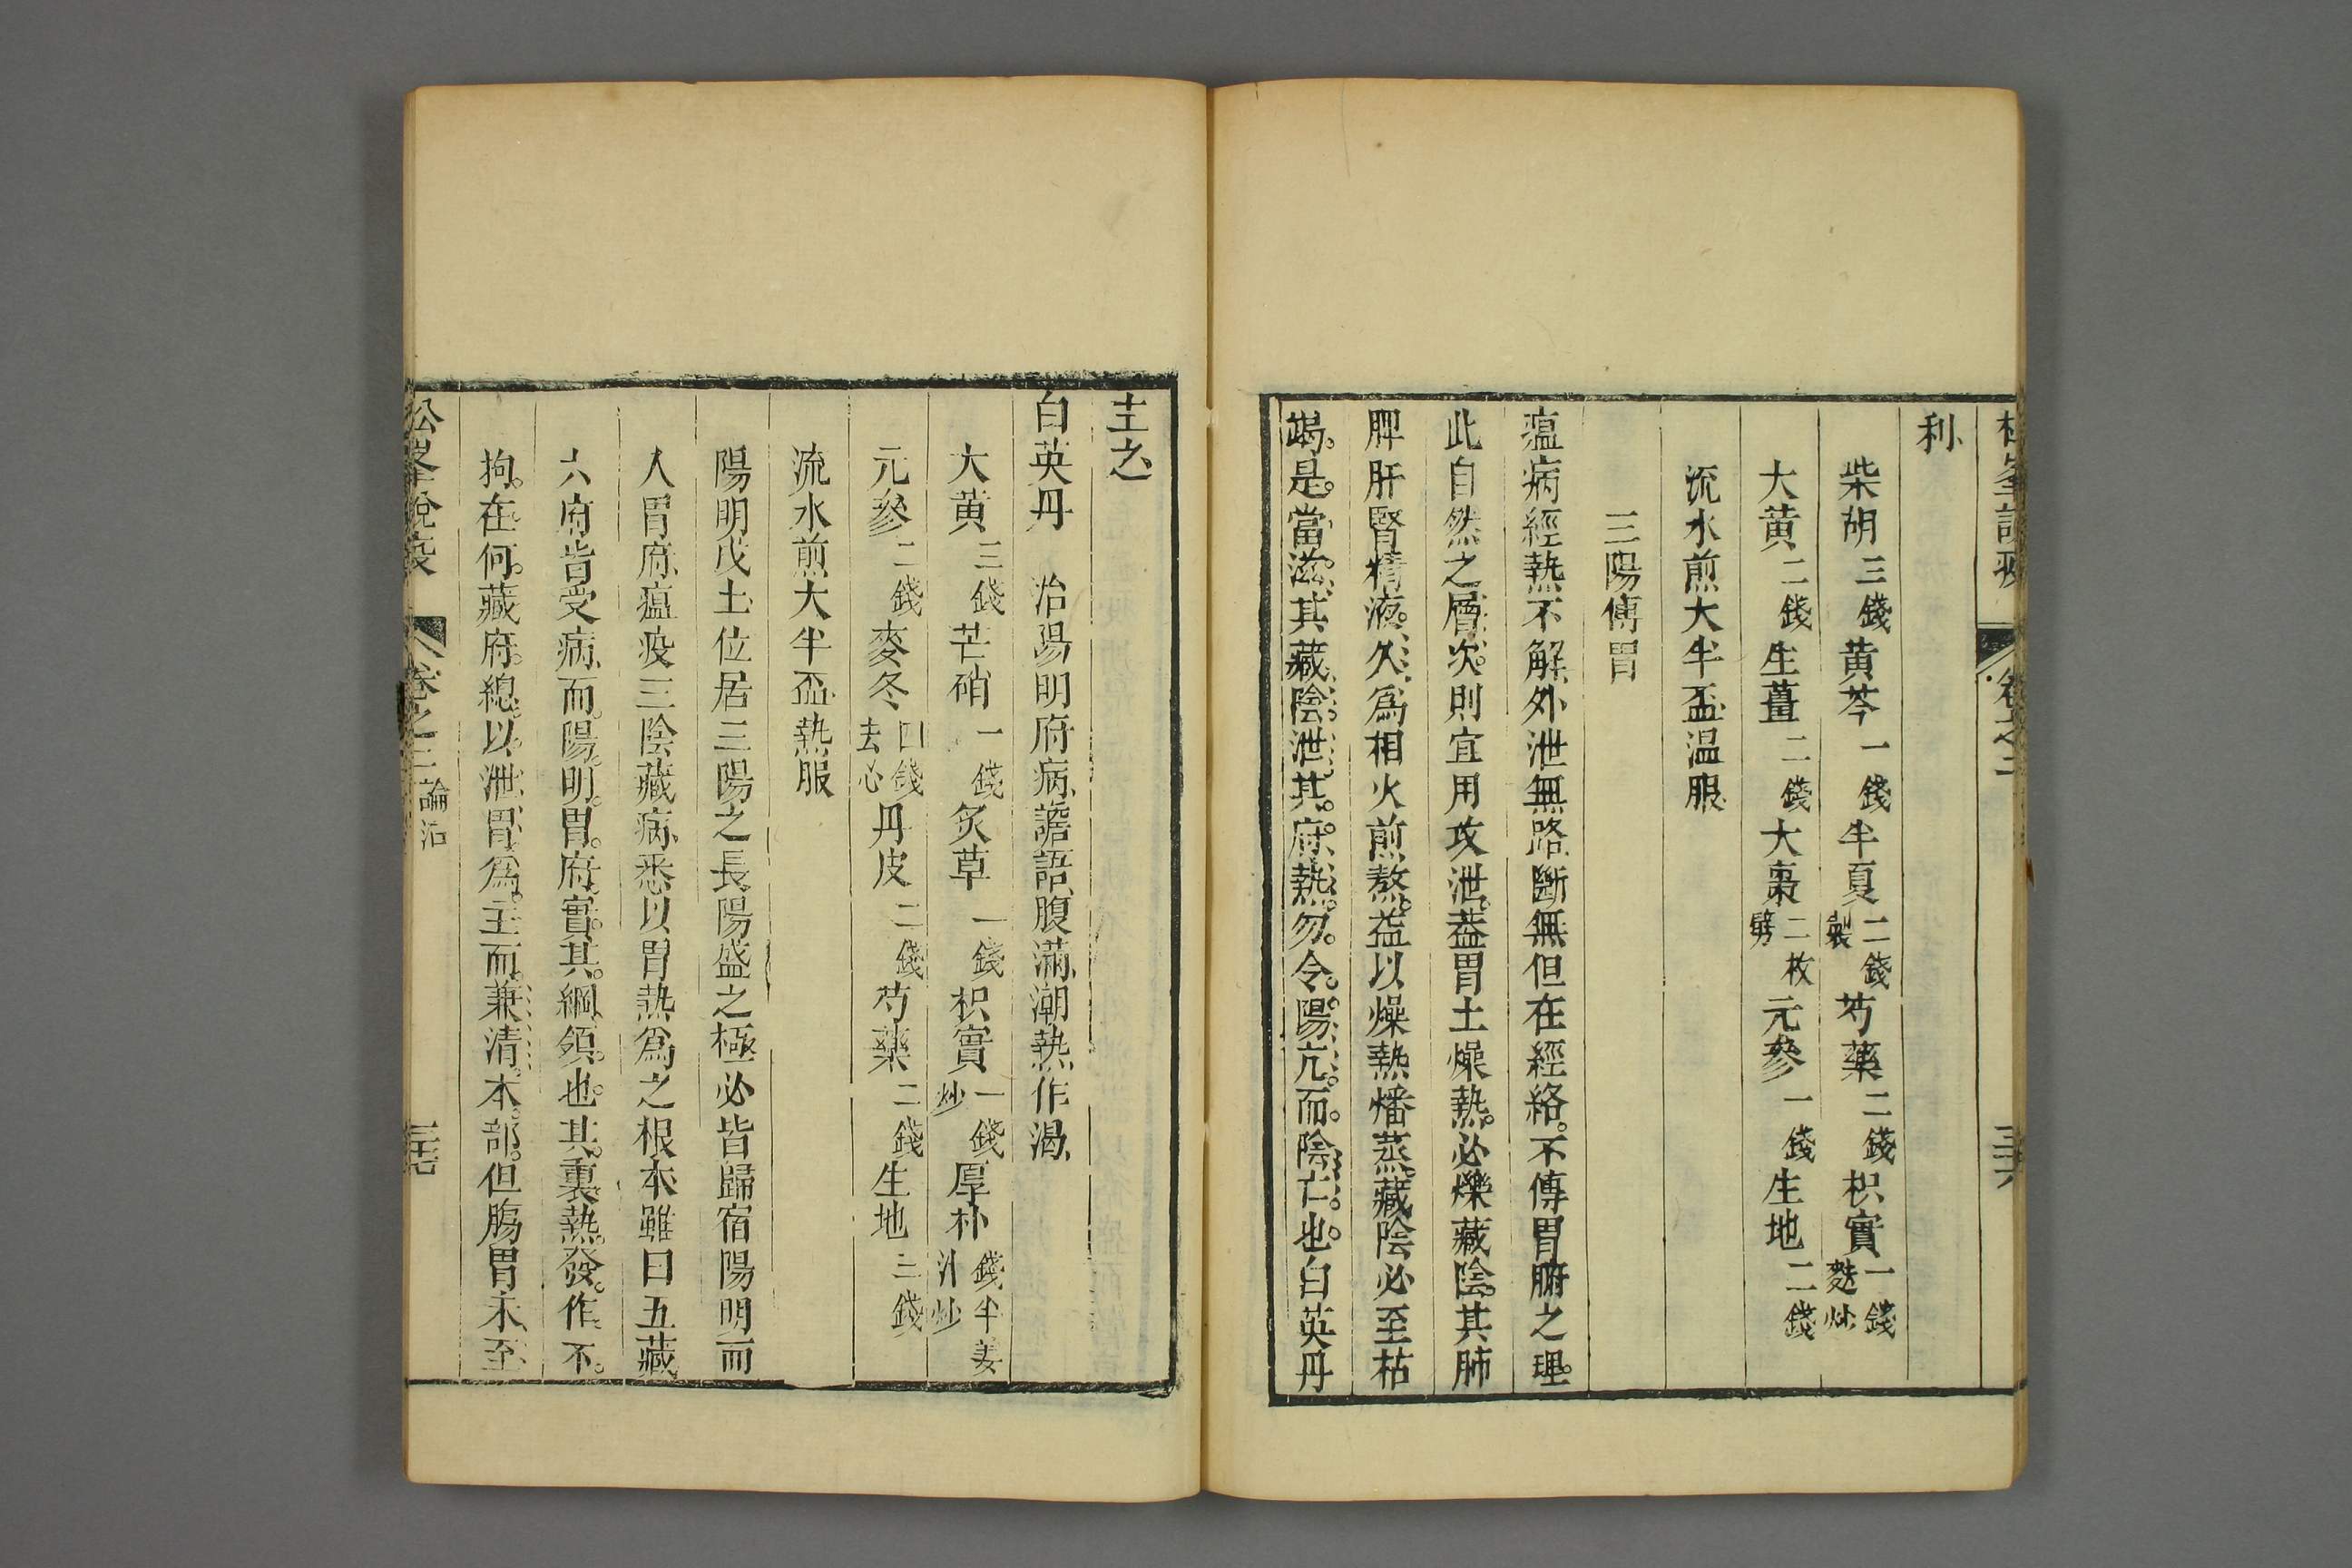 松峯說疫 卷之二 三十六
利
柴胡三錢黄芩一錢半夏二錢製芍藥二錢枳實一錢麩炒
大黄二錢生薑二錢大棗二枚劈元參一錢生地二錢
流水煎大半盃溫服
三陽傳胃
瘟病經熱不解外泄無路斷無但在經絡不傳胃腑之理
此自然之層次則宜用攻泄葢胃土燥熱必爍藏陰其肺
脾肝腎精液久爲相火煎熬益以燥熱燔蒸藏陰必至枯
竭是當滋其藏陰泄其府熱勿令陽亢而陰亡也白英丹
主之
白英丹 治陽明府病譫語腹滿潮熱作渴
大黄三錢芒硝一錢炙草一錢枳實一錢炒厚朴錢半姜汁炒
元參二錢麥冬四錢去心丹皮二錢芍藥二錢生地三錢
流水煎大半盃熱服
陽明戊土位居三陽之長陽盛之極必皆歸宿陽明而
入胃府瘟疫三陰藏病悉以胃熱爲之根本雖曰五藏
六府皆受病而陽明胃府實其綱領也其裏熱發作不
拘在何藏府總以泄胃爲主而兼清本部但腸胃未至
松峯說疫 卷之二 論治 三十七